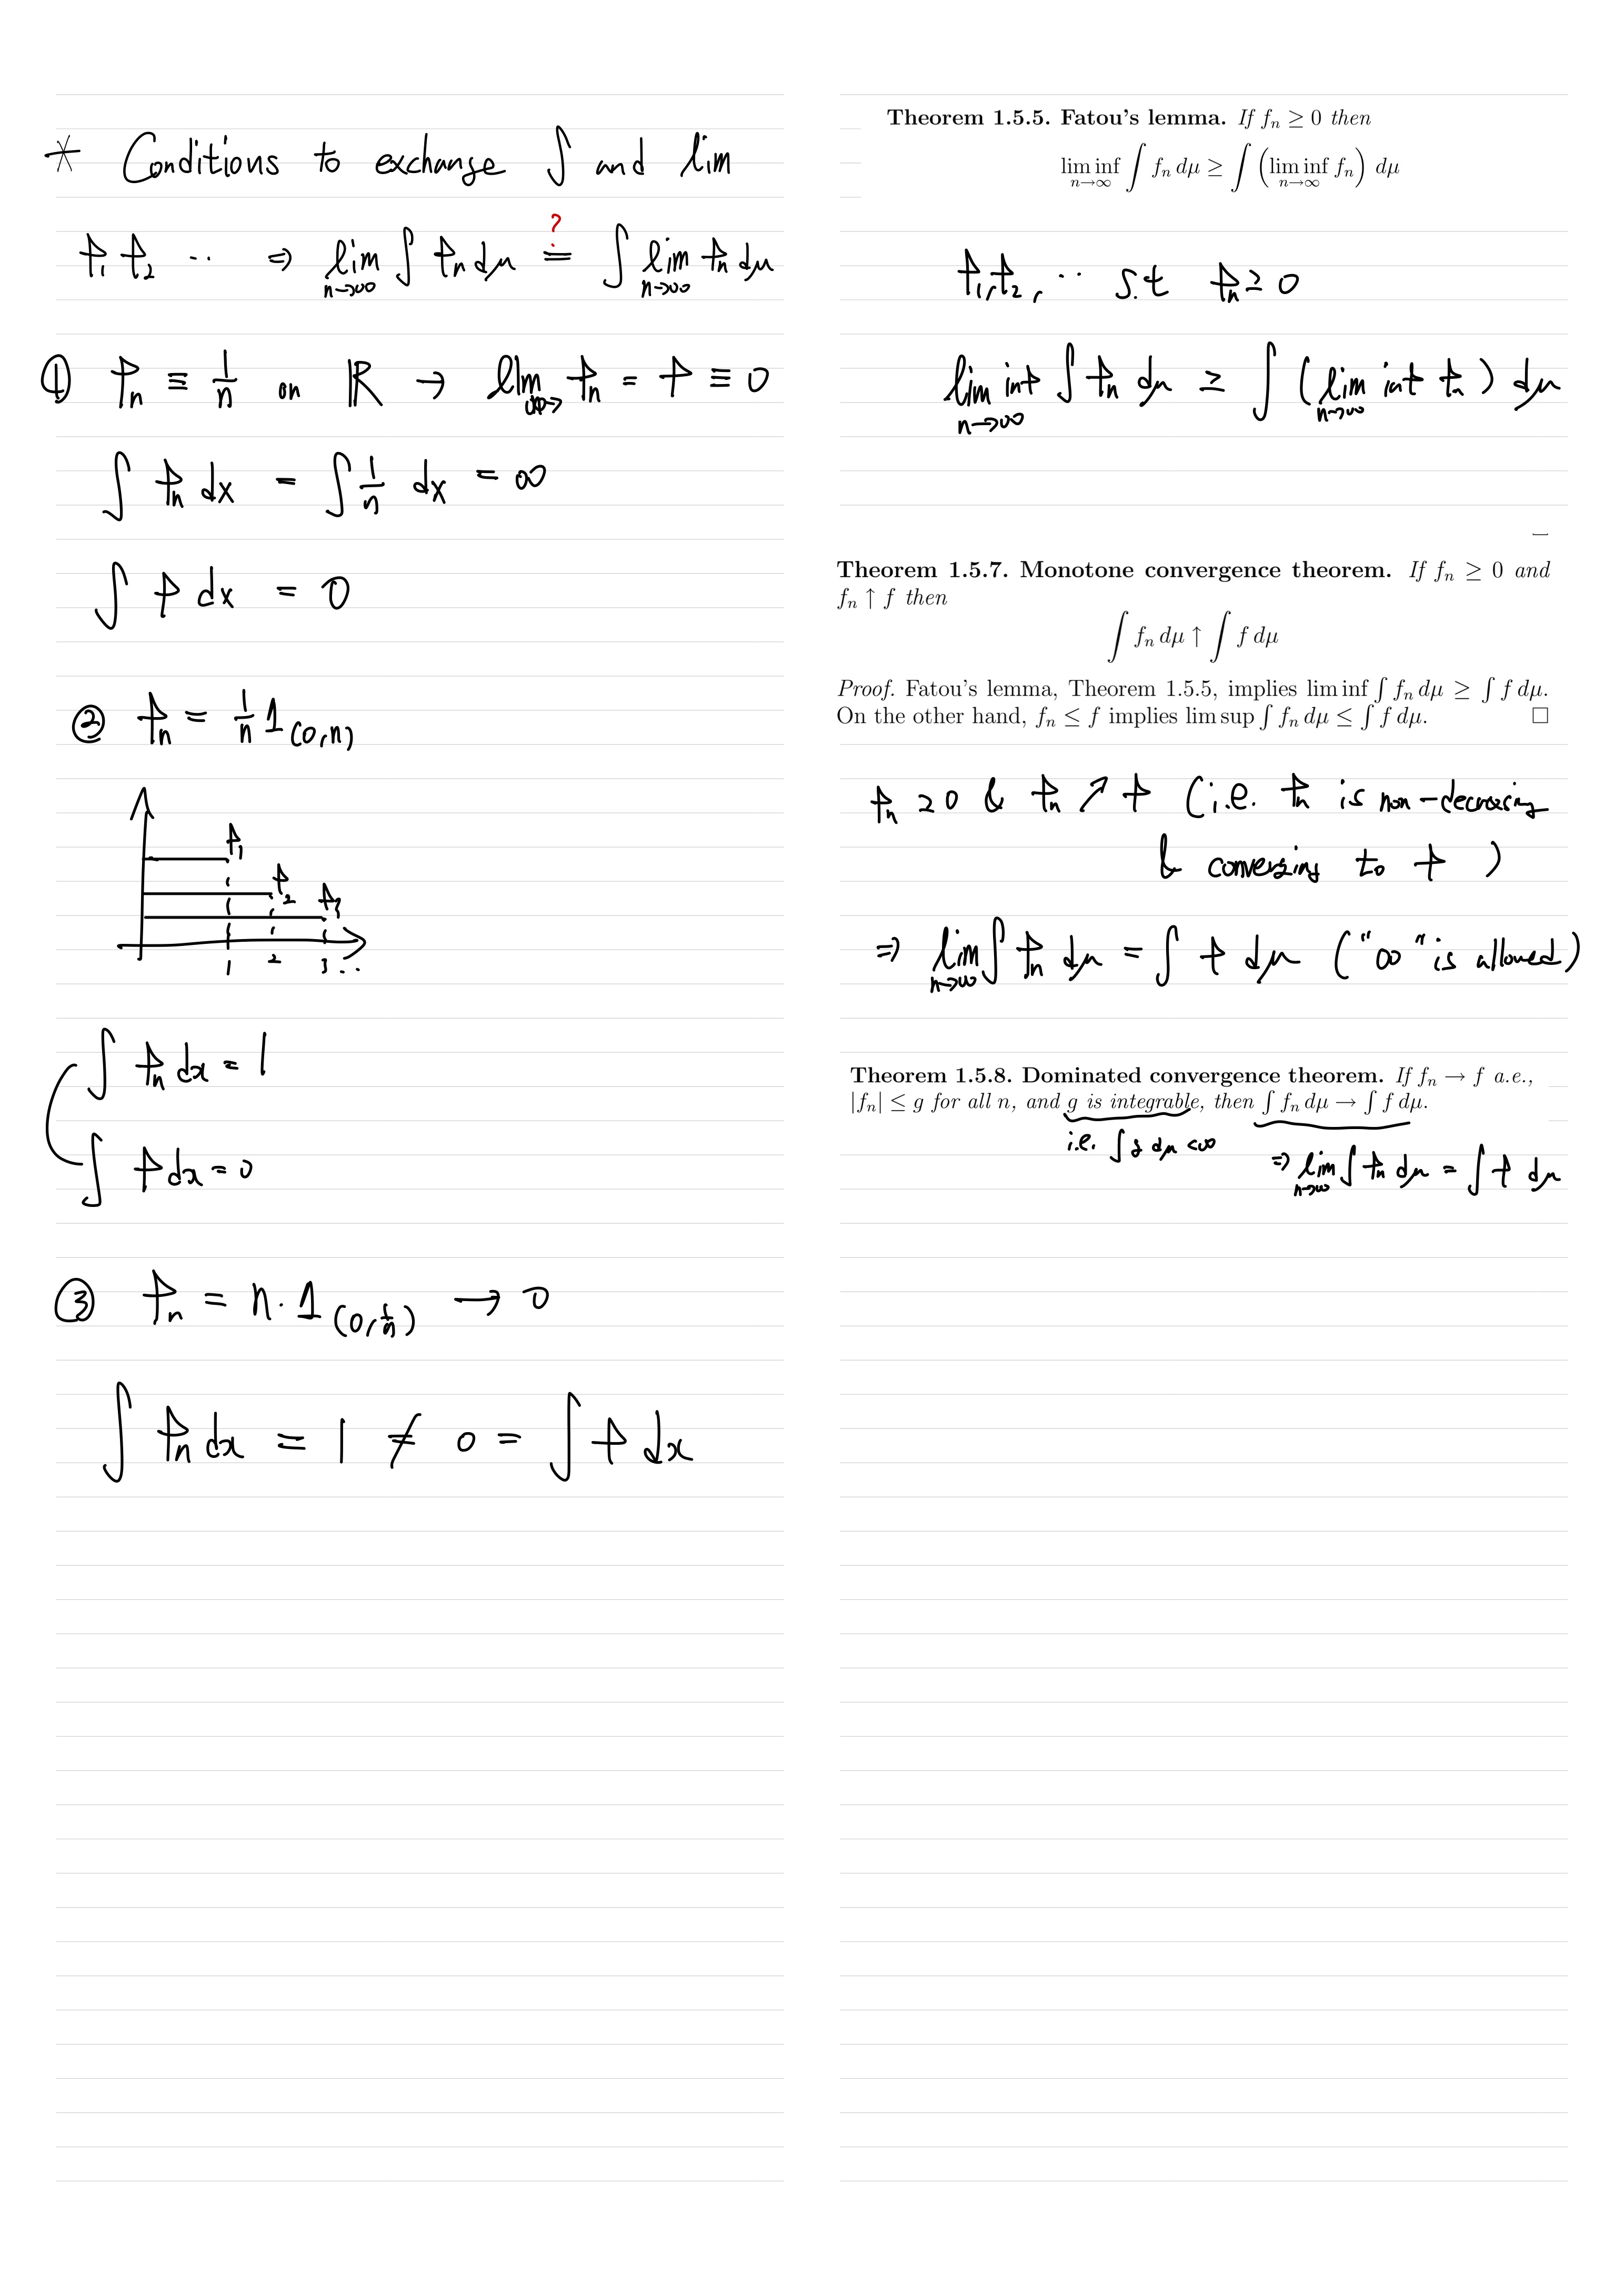 * Conditions to exchange ∫ and lim
f₁ f₂ ·· ⇒ lim_{n→∞} ∫ fₙ dμ ≟ ∫ lim_{n→∞} fₙ dμ
① fₙ ≡ 1/n on ℝ → lim_{n→∞} fₙ = f ≡ 0
∫ fₙ dx = ∫ 1/n dx = ∞
∫ f dx = 0
② fₙ = 1/n 1_{(0,n)}
f₁
f₂
f₃
1 2 3 ..
∫ fₙ dx = 1
∫ f dx = 0
③ fₙ = n · 1_{(0,1/n)} → 0
∫ fₙ dx = 1 ≠ 0 = ∫ f dx
Theorem 1.5.5. Fatou's lemma. If fₙ ≥ 0 then
lim inf_{n→∞} ∫ fₙ dμ ≥ ∫ (lim inf_{n→∞} fₙ) dμ
f₁, f₂, ·· s.t fₙ ≥ 0
lim inf_{n→∞} ∫ fₙ dμ ≥ ∫ (lim inf_{n→∞} fₙ) dμ
Theorem 1.5.7. Monotone convergence theorem. If fₙ ≥ 0 and
fₙ ↑ f then
∫ fₙ dμ ↑ ∫ f dμ
Proof. Fatou's lemma, Theorem 1.5.5, implies lim inf ∫ fₙ dμ ≥ ∫ f dμ.
On the other hand, fₙ ≤ f implies lim sup ∫ fₙ dμ ≤ ∫ f dμ. □
fₙ ≥ 0 & fₙ ↗ f (i.e. fₙ is non-decreasing
& converging to f )
⇒ lim_{n→∞} ∫ fₙ dμ = ∫ f dμ ("∞" is allowed)
Theorem 1.5.8. Dominated convergence theorem. If fₙ → f a.e.,
|fₙ| ≤ g for all n, and g is integrable, then ∫ fₙ dμ → ∫ f dμ.
i.e. ∫ g dμ < ∞
⇒ lim_{n→∞} ∫ fₙ dμ = ∫ f dμ